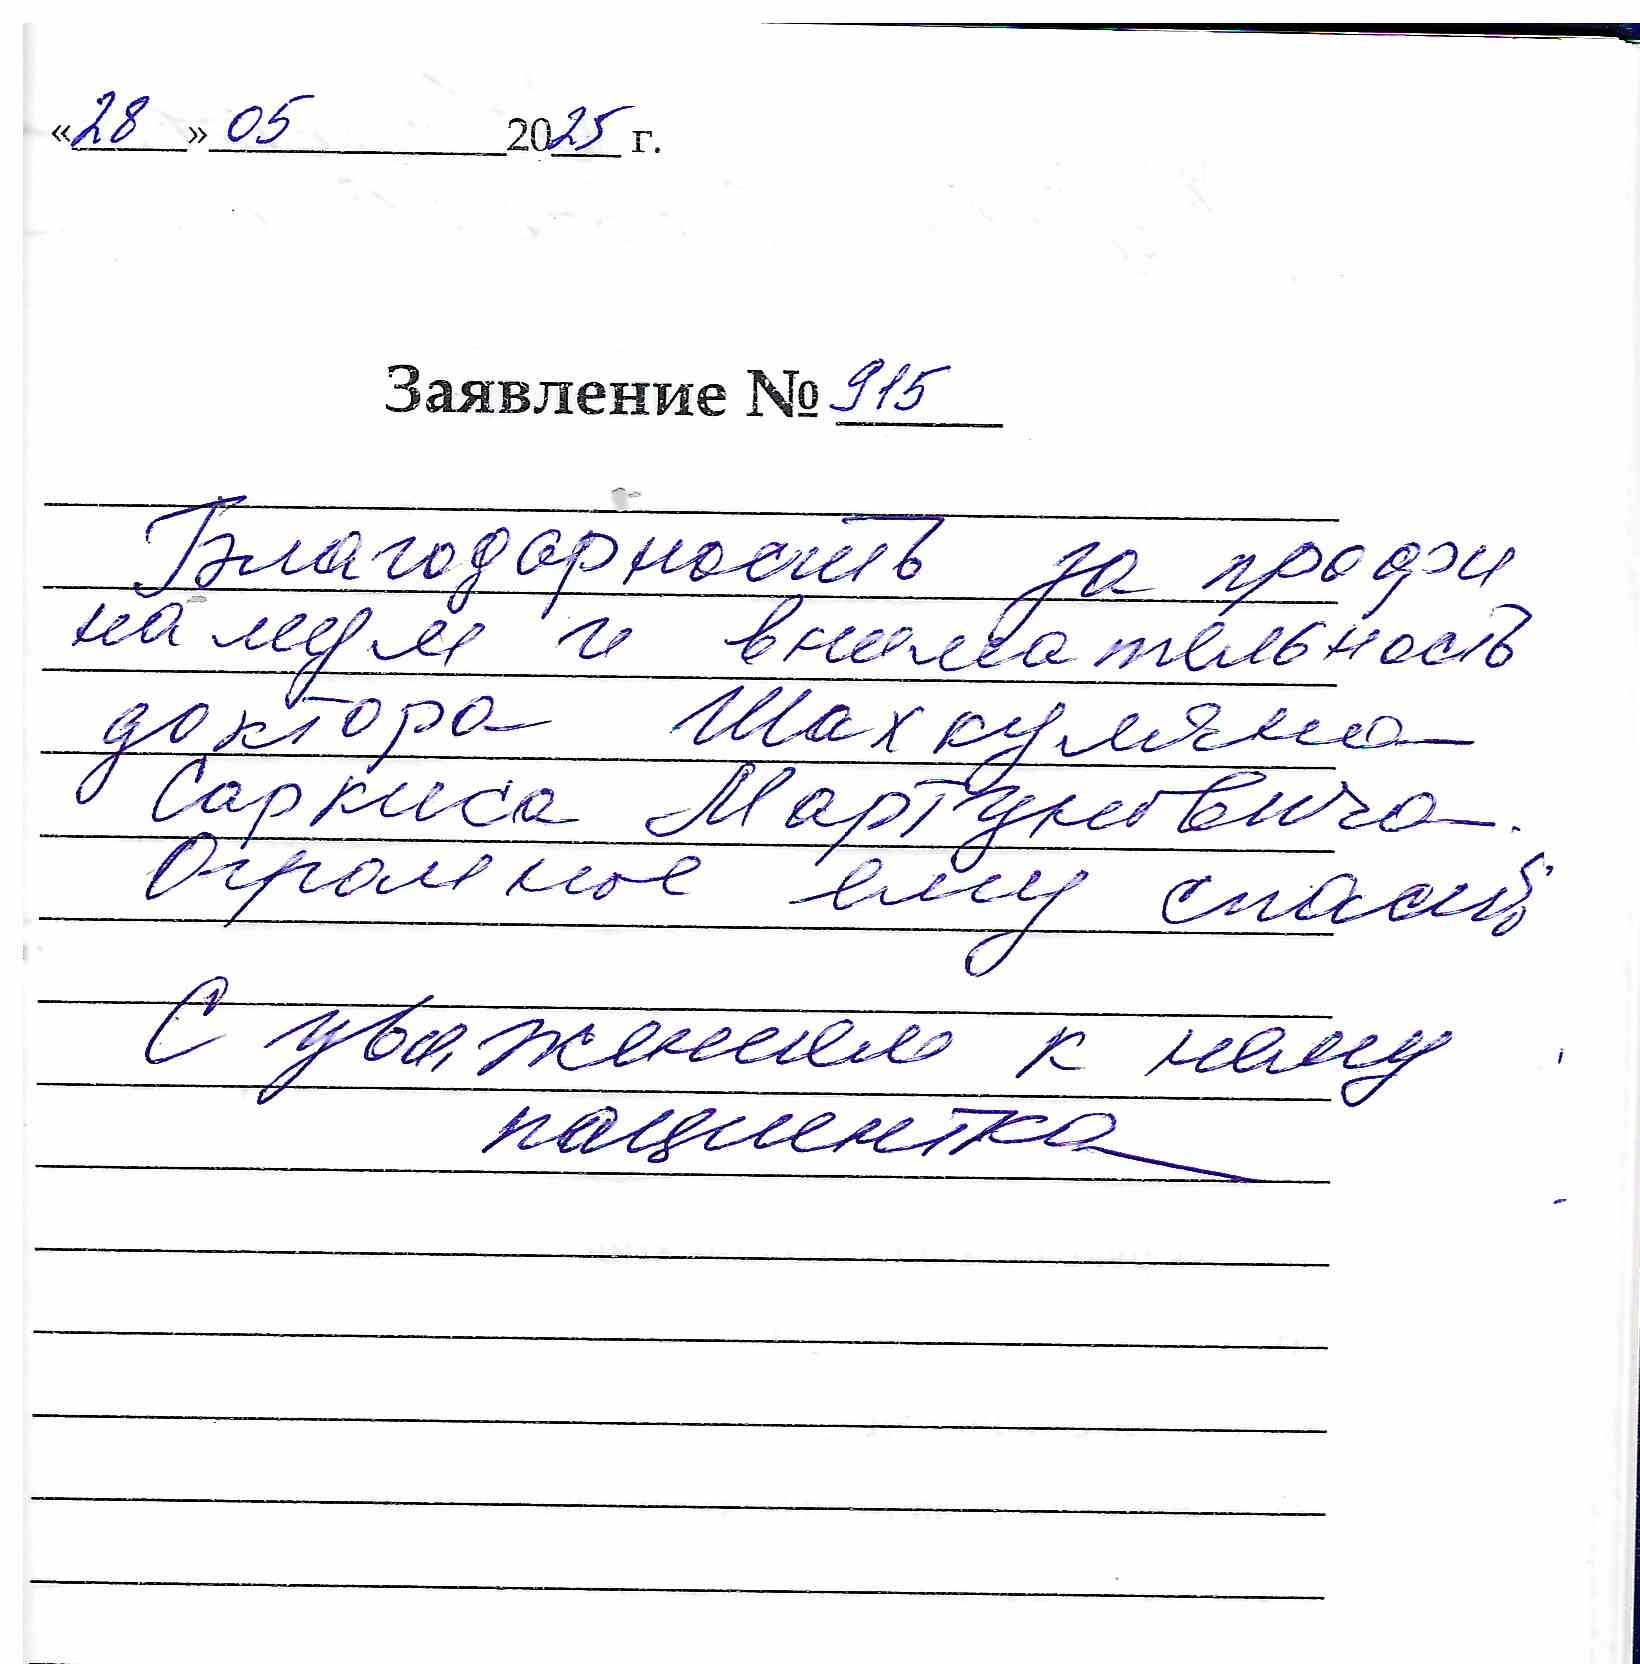 «28» 05 2025 г.
Заявление № 915
Благодарность за профи
и внимательность
доктора Шахкуляна
Саркиса Мартуновича.
Огромное ему спасиб
С уважением к нему
пациентка